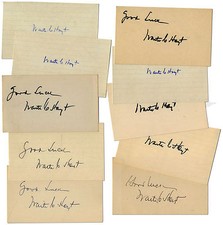 Waite C Hoyt
Waite C Hoyt
Good Luck
Waite C Hoyt
Good Luck
Waite C Hoyt
Good Luck
Waite C Hoyt
Good Luck
Waite C Hoyt
Waite C Hoyt
Waite C Hoyt
Waite C Hoyt
Good Luck
Waite C Hoyt